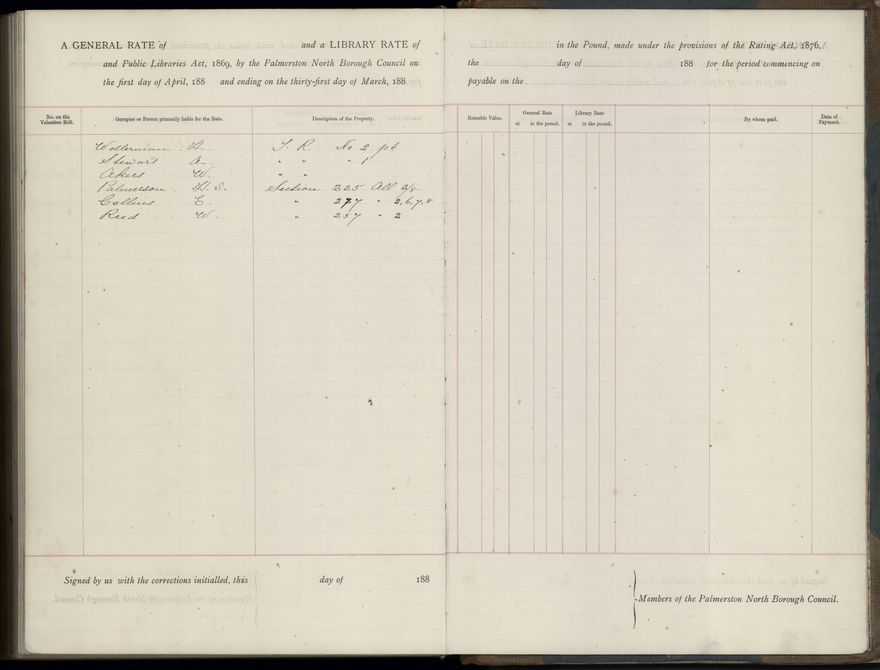 A GENERAL RATE of and a LIBRARY RATE of
and Public Libraries Act, 1869, by the Palmerston North Borough Council on
the first day of April, 188 and ending on the thirty-first day of March, 188
No. on the Valuation Roll.
Occupier or Person primarily liable for the Rate.
Description of the Property.
T. R. No 2 pt
Stewart A. " " " 1
Akers W. " "
Palmerson H. S. Section 225 All 9/5
Collins E. " 277 " 2, 6, 7, 8
Reed W. " 257 " 2
Signed by us with the corrections initialled, this day of 188
in the Pound, made under the provisions of the Rating Act, 1876,
the day of 188 for the period commencing on
payable on the
Rateable Value.
General Rate
at in the pound.
Library Rate
at in the pound.
By whom paid.
Date of Payment.
Members of the Palmerston North Borough Council.